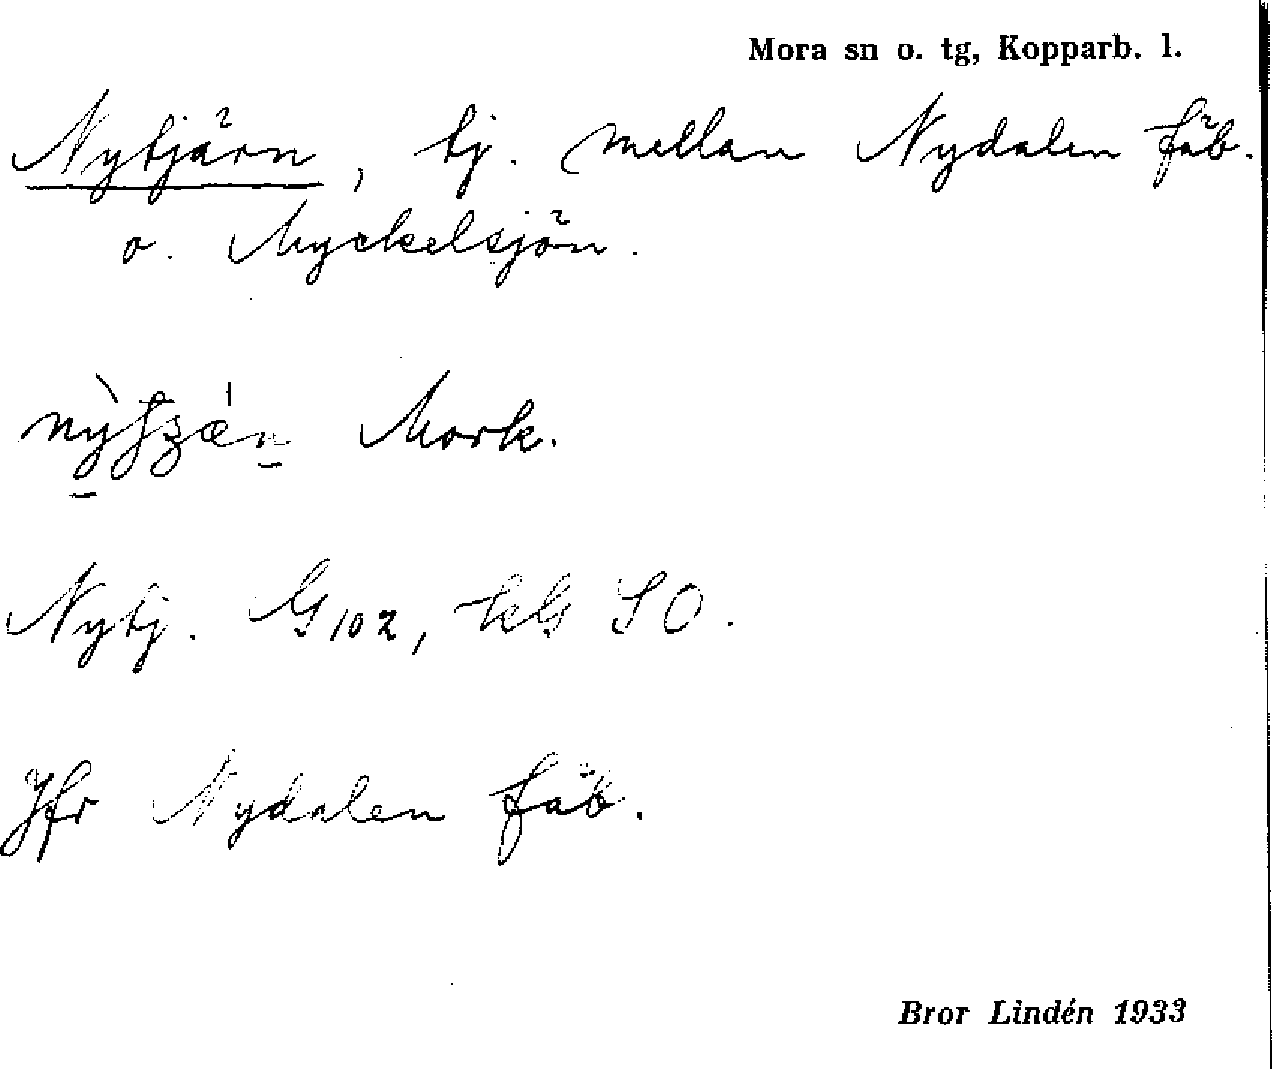 Mora sn o. tg, Kopparb. l.
Nytjärn, tj. mellan Nydalen fäb.
o. Myckelsjön.
Mork.
Nytj. G 102, SO.
Jfr Nydalen fäb.
Bror Lindén 1933